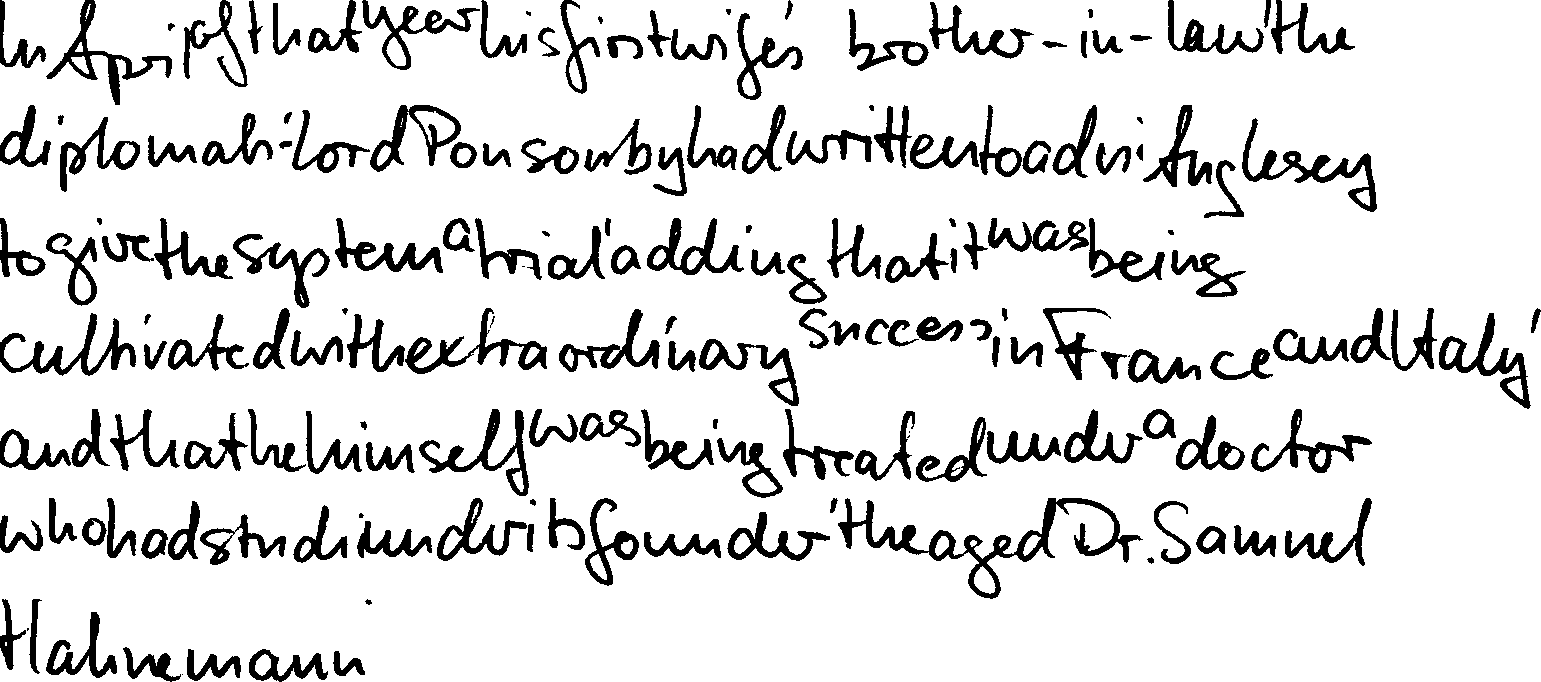 In April of that year his first wife's brother-in-law, the
diplomat Lord Ponsonby had written to advise Anglesey
to give the system a trial, adding that it was being
cultivated with extraordinary success in France and Italy,
and that he himself was being treated under a doctor
who had studied under its founder, the aged Dr. Samuel
Hahnemann